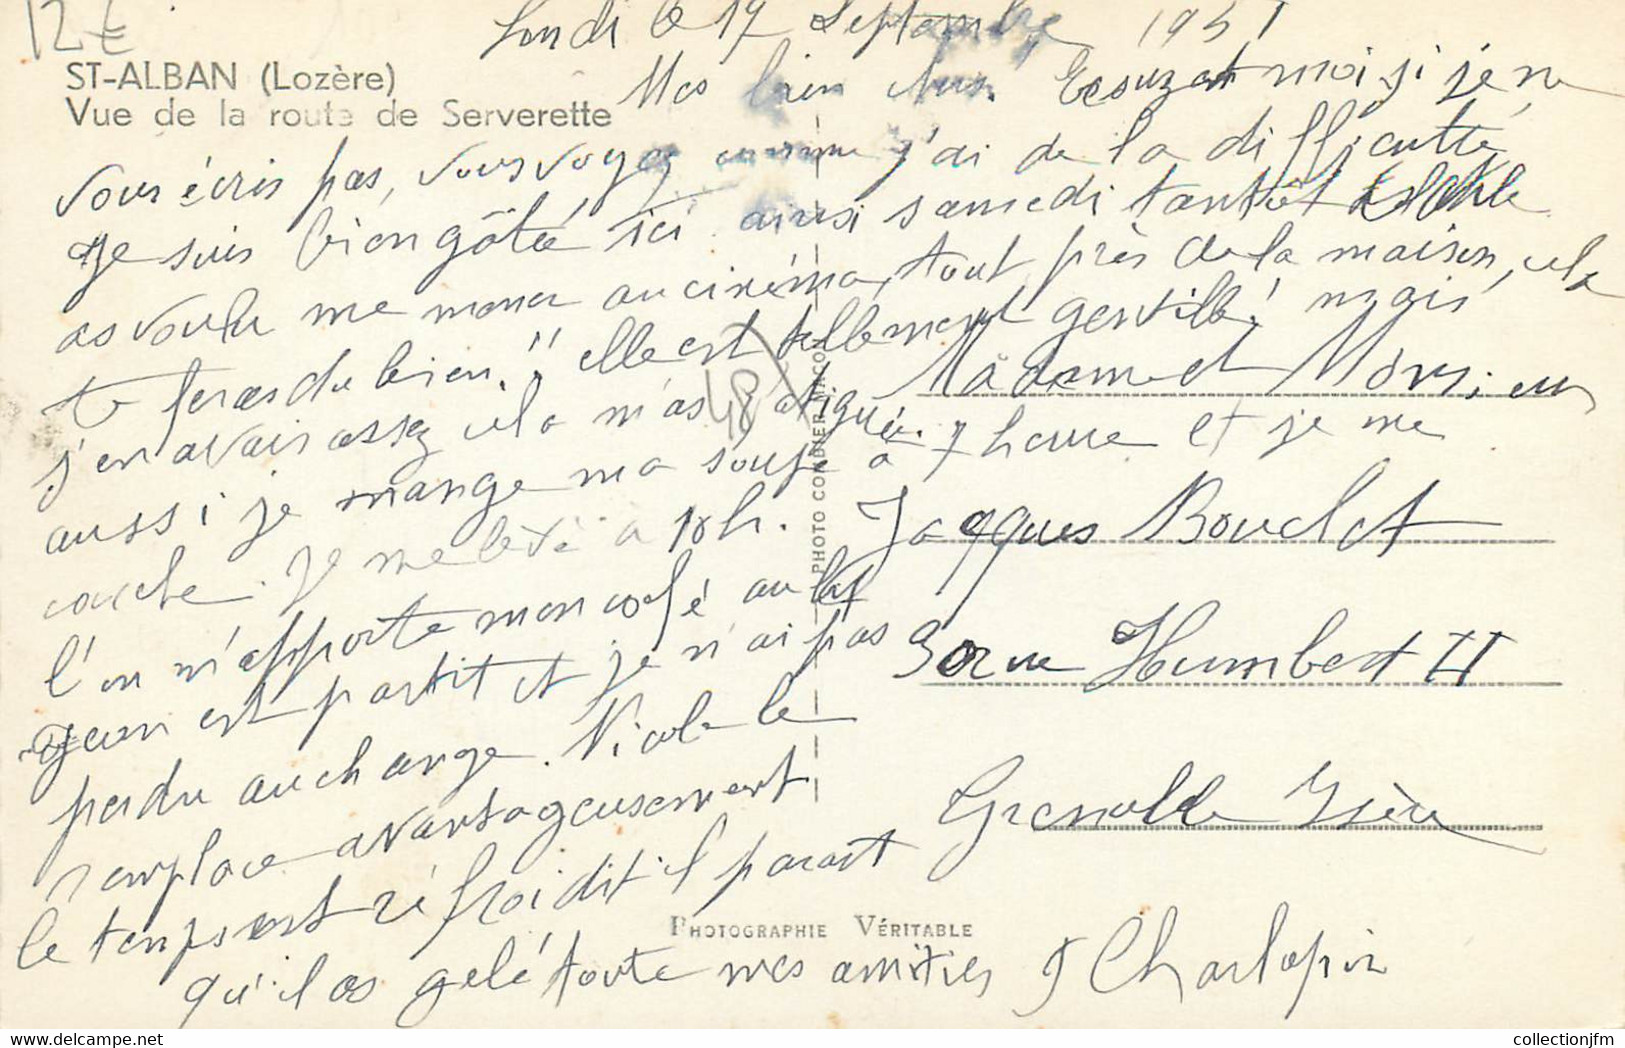 12€
ST-ALBAN (Lozère)
Vue de la route de Serverette
Lundi le 17 Septembre 1951
Mes bien chers. Escuzet moi si je ne
vous écris pas, vous voyez comme j'ai de la difficulté
je suis bien gâtée ici ainsi samedi tantôt
as voulu me mener au cinéma, tout près de la maison, cela
te feras du bien." elle est tellement gentille! mais
j'en avais assez cela m'as fatiguée.
aussi je mange ma soupe à 7 heure et je me
couche. je me lève à 10h.
l'on m'apporte mon café au lit
Jean est partit et je n'ai pas
perdu au change. Nicole le
remplace avantageusement
le temps est réfroidit il parait
qu'il as gelé toute mes amities J Charlopin
Madame et Monsieur
Jacques Bouclet
30 rue Humbert II
Grenoble Isère
48
PHOTO COMBIER MACON
PHOTOGRAPHIE VÉRITABLE
collectionjfm